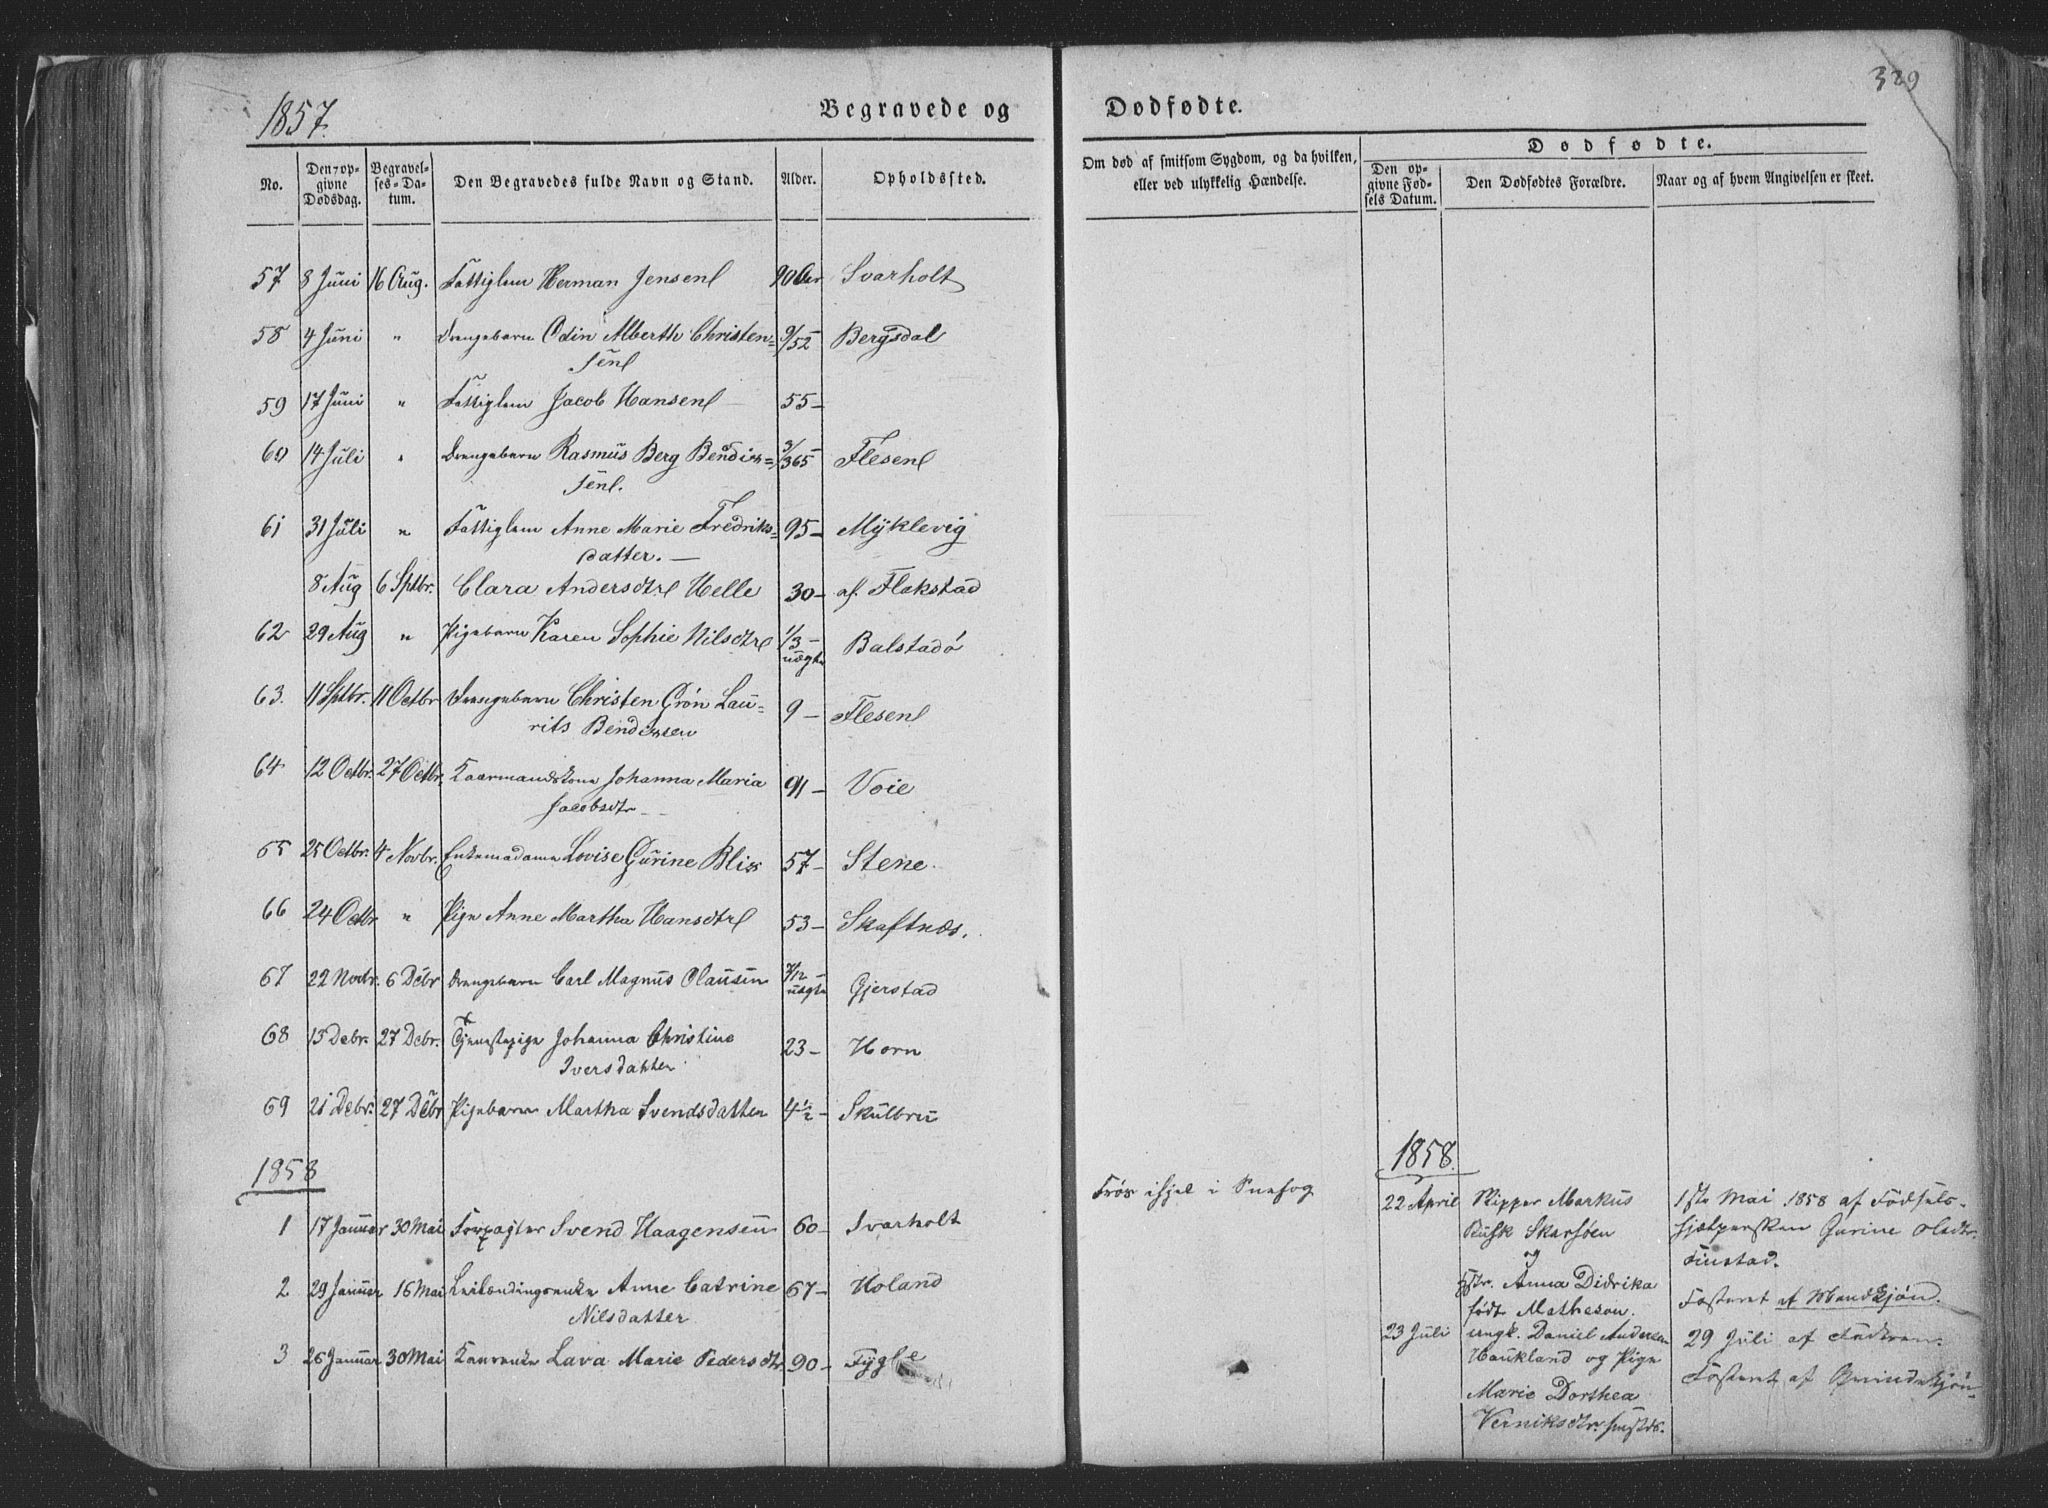 1857.
Begravede og Dødfødte.
329
No.
Den opgivne Dødsdag.
Begravelses-Datum.
Den Begravedes fulde Navn og Stand.
Alder.
Opholdssted.
Om død af smitsom Sygdom, og da hvilken, eller ved ulykkelig Hændelse.
Dødfødte.
Den opgivne Fødsels Datum.
Den Dødfødtes Forældre.
Naar og af hvem Angivelsen er skeet.
57 8 Juni 16 Aug. Fattiglem Herman Jensen 90 Aar Svarholt
58 4 Juni " Drengebarn Odin Alberth Christen= 9/52 Bergsdal
sen
59 17 Juni " Fattiglem Jacob Hansen 55 –
60 14 Juli " Drengebarn Rasmus Berg Bendix= 3/365 Flesen
sen.
61 31 Juli " Fattiglem Anne Marie Fredriks= 95 – Myklevig
datter. –
8 Aug 6 Sptbr. Clara Andersdtr Helle 30 – af Flakstad
62 29 Aug " Pigebarn Karen Sophie Nilsdtr 1/3 – uægte Balstadø
63. 11 Sptbr. 11 Octbr Drengebarn Christen Grøn Lau= 9 – Flesen
rits Bendixsen
64 12 Octbr. 27 Octbr. Kaarmandskone Johanna Maria 91 – Voie
Jacobsdtr
65 25 Octbr. 4 Novbr. Enkemadame Lovise Gurine Blix 57 – Stene.
66 24 Octbr " Pige Anne Martha Hansdtr 53 – Skaftnæs.
67 22 Novbr. 6 Debr Drengebarn Carl Magnus Olausen 7/12 – uægte Gjerstad
68 15 Debr. 27 Debr. Tjenestepige Johanna Christine 23 – Horn
Iversdatter
69 21 Debr. 27 Debr Pigebarn Martha Svendsdatter 4½ – Skulbru
1858
1 17 Januar 30 Mai Forpagter Svend Haagensen 60 – Svarholt
Frøs ihjel i Snefog
2 29 Januar 16 Mai Leilændingsenke Anne Catrine 67 – Holand
Nilsdatter
3 26 Januar 30 Mai Kaarenke Lava Marie Pedersdtr 90 – Fygle
1858.
22 April Skipper Markus
Rusk Skarsøen
og
Hstr. Anna Didrika
født Matheson.
1ste Mai 1858 af Fødsels-
hjælpersken Gurine Olsdtr.
Finstad.
Fosteret af Mandkjøn.
23 Juli ungk. Daniel Andersen
Haukland og Pige
Marie Dorthea
Verniksdtr.
29 Juli af Faderen.
Fosteret af Qvindekjøn.